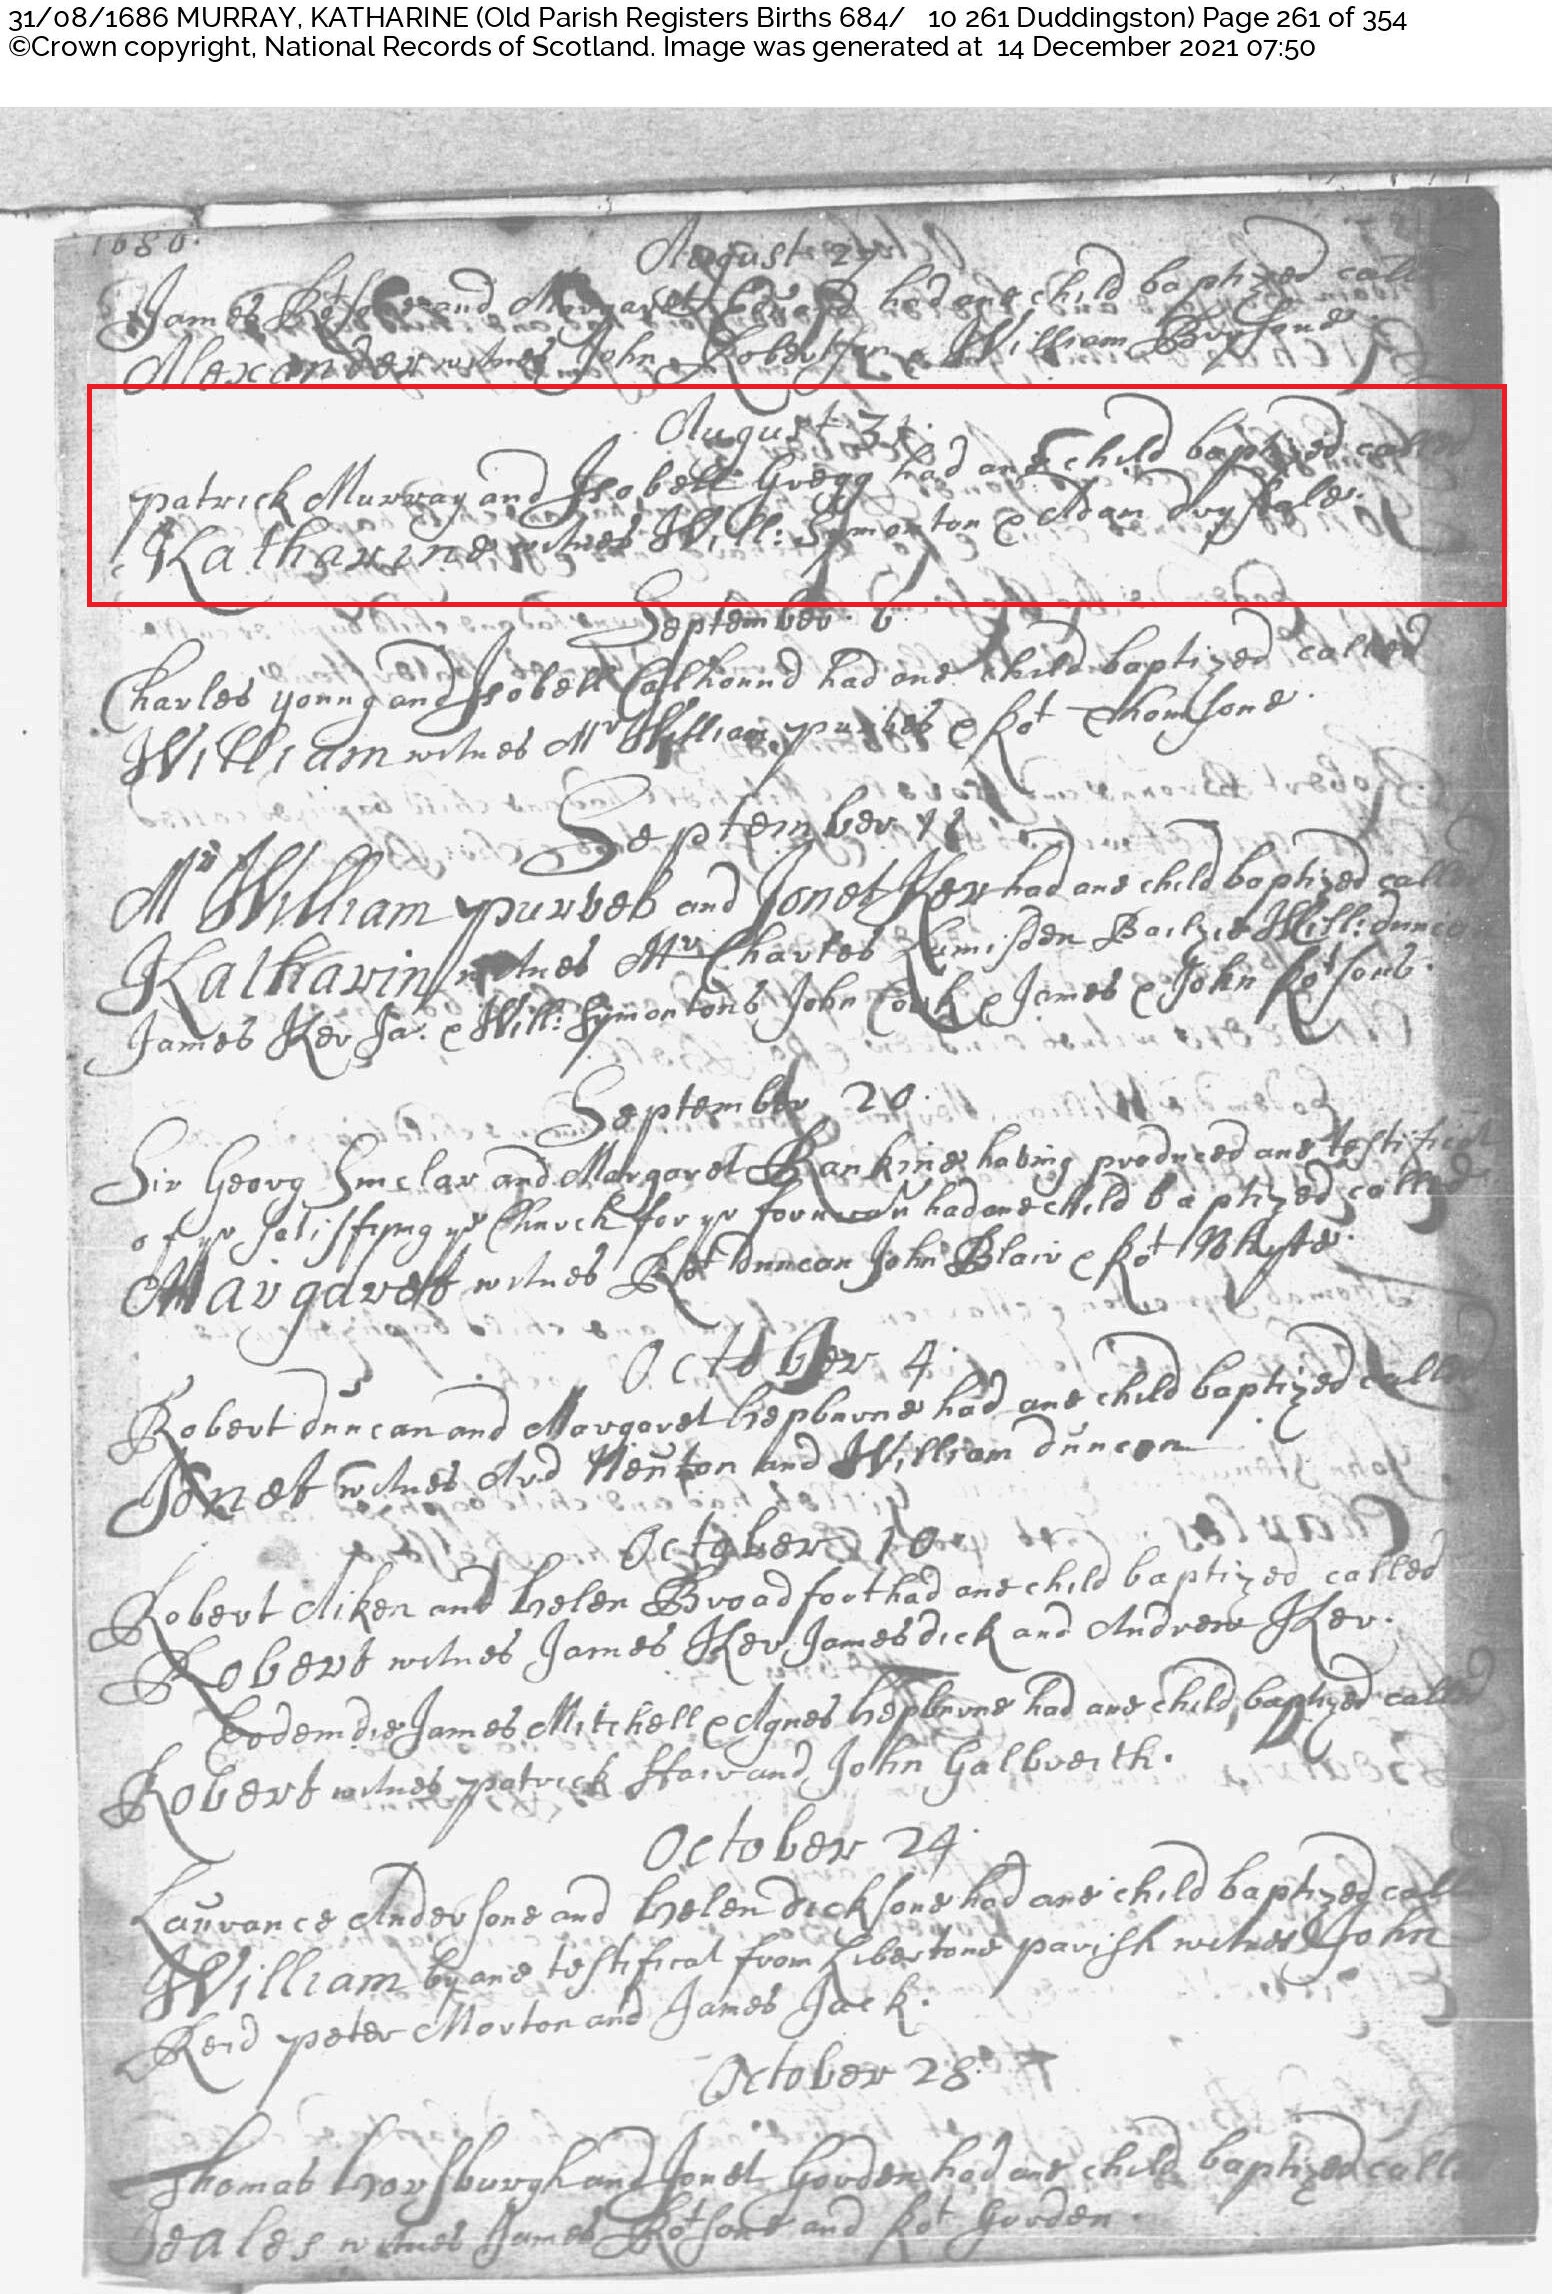 31/08/1686 MURRAY, KATHARINE (Old Parish Registers Births 684/ 10 261 Duddingston) Page 261 of 354
©Crown copyright, National Records of Scotland. Image was generated at 14 December 2021 07:50
1686.
August 27
James and Margaret had ane child baptized
Alexander witnes John Robertson William Brysone.
August 31.
patrick Murray and Isobell Gregg had ane child baptized called
Katharine witnes Will: Symonton & Adam drysdale.
September 6
Charles young and Isobell Calhound had ane child baptized called
William witnes Mr William purves & Rot Thomsone.
September 11
Mr William purves and Jonet Ker had ane child baptized called
Katharin witnes Mr Charles Lumisden Bailzie Will: duncan
James Ker Ja: & Will: Symontons John Couk & James & John Rotsons.
September 20.
Sir Georg Sinclar and Margaret Rankine having produced ane testificat
of yr satisfiyng ye Church for yr had ane child baptized called
Margaret witnes Rot duncan John Blair & Rot Whyte.
October 4.
Robert duncan and Margaret hepburne had ane child baptized called
Jonet witnes And Neuton and William duncan
October 10.
Robert Aiken and helen Broadfoot had ane child baptized called
Robert witnes James Ker James dick and Andrew Ker.
Eodem die James Mitchell & Agnes hepburne had ane child baptized called
Robert witnes patrick ffair and John Galbreith.
October 24.
Laurance Andersone and helen dicksone had ane child baptized called
William by ane testificat from Libertone parish witnes John
Reid peter Morton and James Jack.
October 28.
Thomas horsburgh and Jonet Gorden had ane child baptized called
witnes James Rotsone and Rot Gorden.